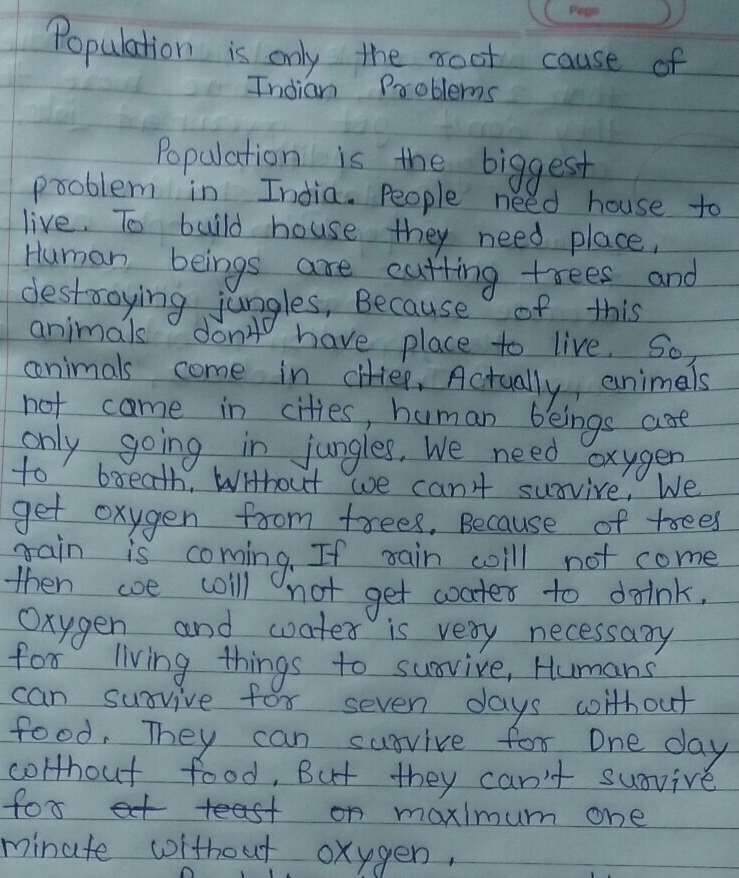 Page
Population is only the root cause of
Indian Problems
Population is the biggest
problem in India. People need house to
live. To build house they need place.
Human beings are cutting trees and
destroying jungles. Because of this
animals don't have place to live. So,
animals come in cities. Actually, animals
not came in cities, human beings are
only going in jungles. We need oxygen
to breath. Without we can't survive. We
get oxygen from trees. Because of trees
rain is coming. If rain will not come
then we will not get water to drink.
Oxygen and water is very necessary
for living things to survive. Humans
can survive for seven days without
food. They can survive for One day
without food. But they can't survive
for at least on maximum one
minute without oxygen.